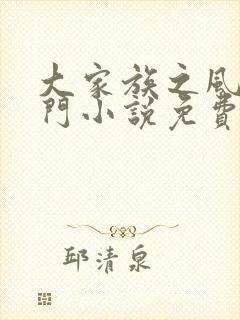 大家族之風
門小說免費
邱清泉